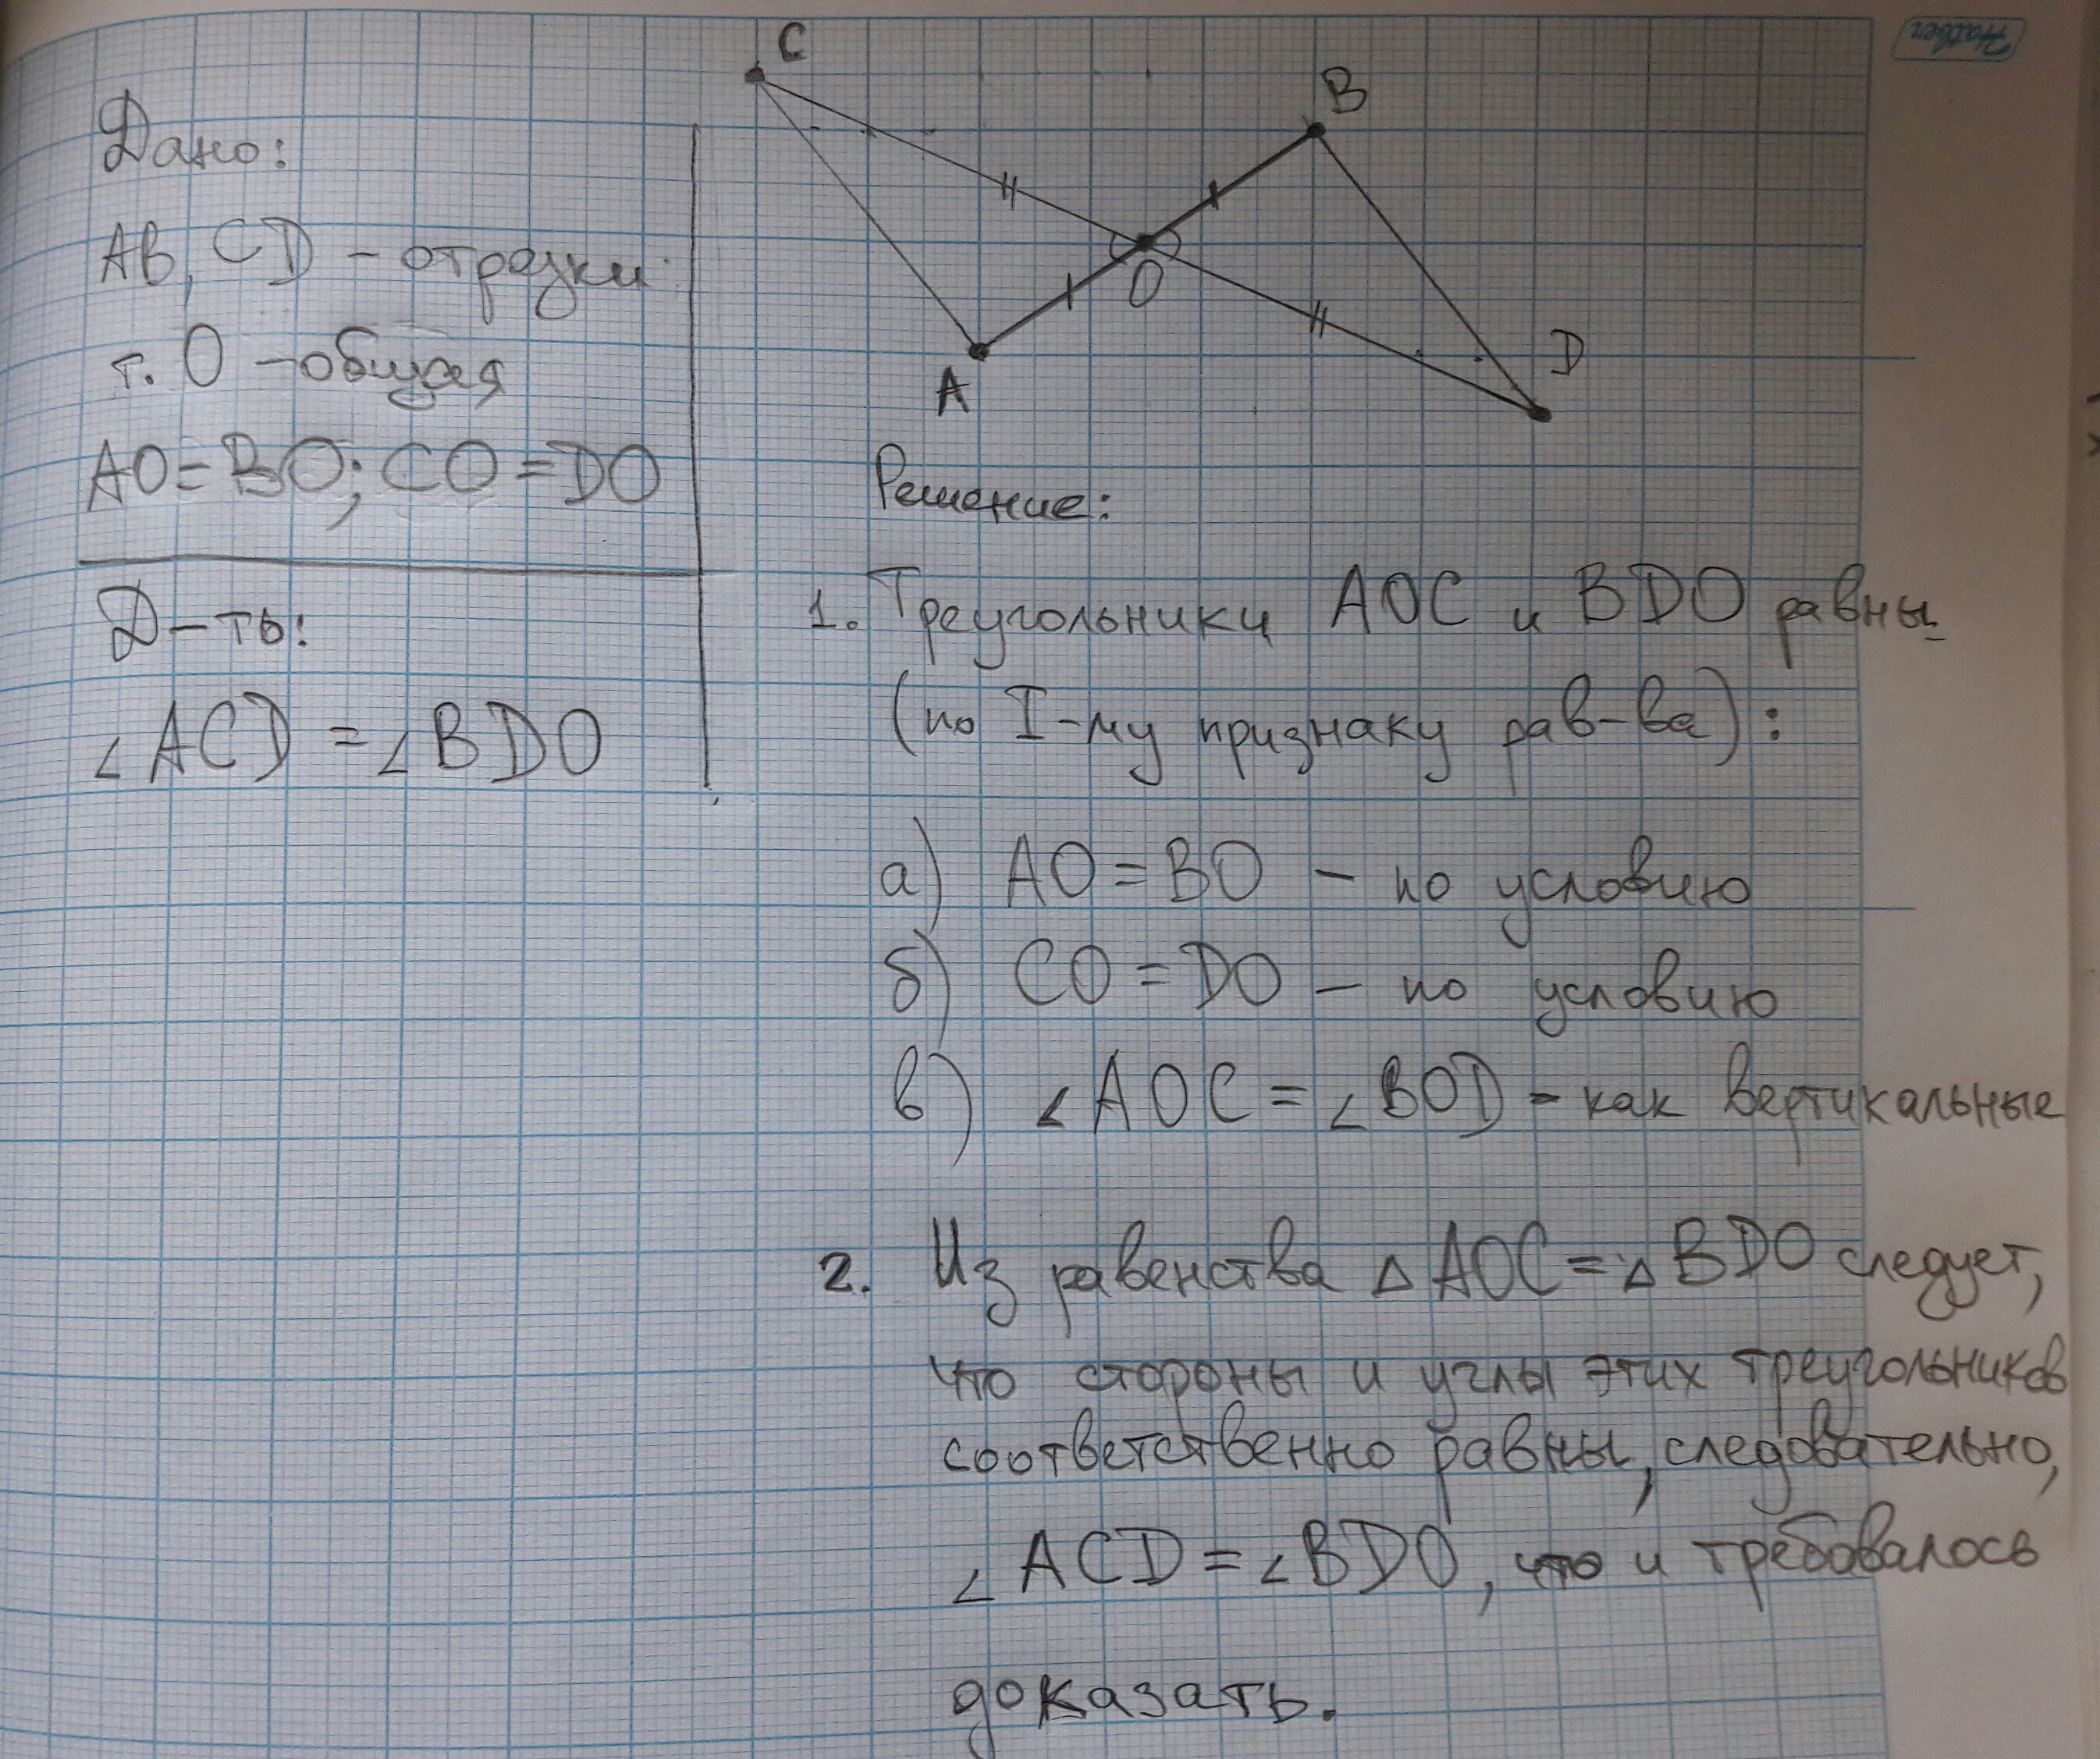 Hatber
C
B
O
A
D
Дано:
AB, CD - отрезки
т. O - общая
AO = BO; CO = DO
Д-ть:
∠ACD = ∠BDO
Решение:
1. Треугольники AOC и BDO равны
(по I-му признаку рав-ва):
а) AO = BO - по условию
б) CO = DO - по условию
в) ∠AOC = ∠BOD - как вертикальные
2. Из равенства △AOC = △BDO следует,
что стороны и углы этих треугольников
соответственно равны, следовательно,
∠ACD = ∠BDO, что и требовалось
доказать.